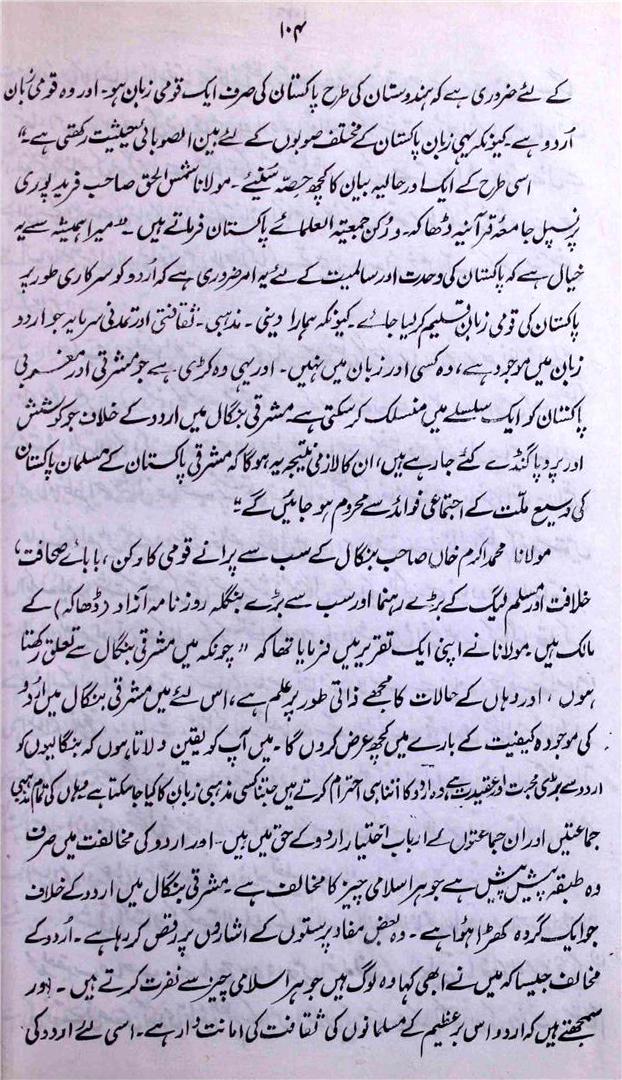 ۱۰۴
کے لئے ضروری ہے کہ ہندوستان کی طرح پاکستان کی صرف ایک قومی زبان ہو۔ اور وہ قومی زبان
اُردو ہے۔ کیونکہ یہی زبان پاکستان کے مختلف صوبوں کے لئے بین الصوبائی حیثیت رکھتی ہے۔"
اسی طرح کے ایک اور حالیہ بیان کا کچھ حِصّہ سُنیئے۔ مولانا شمس الحق صاحب فرید پوری
پرنسپل جامعۂ قرآنیہ ڈھاکہ۔ و رُکن جمعیتہ العلمائے پاکستان فرماتے ہیں۔ "میرا ہمیشہ سے یہ
خیال ہے کہ پاکستان کی وحدت اور سالمیت کے لئے یہ امر ضروری ہے کہ اُردو کو سرکاری طور پر
پاکستان کی قومی زبان تسلیم کر لیا جائے۔ کیونکہ ہمارا دینی۔ مذہبی۔ ثقافتی اور تمدنی سرمایہ جو اردو
زبان میں موجود ہے، وہ کسی اور زبان میں نہیں۔ اور یہی وہ کڑی ہے جو مشرقی اور مغربی
پاکستان کو ایک سلسلے میں منسلک کر سکتی ہے مشرقی بنگال میں اردو کے خلاف جو کوشش
اور پروپاگنڈے کئے جا رہے ہیں، ان کا لازمی نتیجہ یہ ہوگا کہ مشرقی پاکستان کے مسلمان پاکستان
کی وسیع ملّت کے اجتماعی فوائد سے محروم ہو جائیں گے"
مولانا محمد اکرم خاں صاحب بنگال کے سب سے پرانے قومی کارکن، بابائے صحافت،
خلافت اور مسلم لیگ کے بڑے رہنما اور سب سے بڑے بنگلہ روزنامہ آزاد (ڈھاکہ) کے
مالک ہیں۔ مولانا نے اپنی ایک تقریر میں فرمایا تھا کہ "چونکہ میں مشرقی بنگال سے تعلق رکھتا
ہوں، اور وہاں کے حالات کا مجھے ذاتی طور پر علم ہے، اس لئے میں مشرقی بنگال میں اُردو
کی موجودہ کیفیت کے بارے میں کچھ عرض کروں گا۔ میں آپ کو یقین دلاتا ہوں کہ بنگالیوں کو
اردو سے بڑی محبت اور عقیدت ہے وہ اردو کا اتنا ہی احترام کرتے ہیں جتنا کسی مذہبی زبان کا کیا جا سکتا ہے کی تمام مذہبی
جماعتیں اور ان جماعتوں کے ارباب اختیار اردو کے حق میں ہیں۔ اور اردو کی مخالفت میں صرف
وہ طبقہ پیش پیش ہے جو ہر اسلامی چیز کا مخالف ہے۔ مشرقی بنگال میں اردو کے خلاف
جو ایک گروہ کھڑا ہوا ہے۔ وہ بعض مفاد پرستوں کے اشاروں پر رقص کر رہا ہے۔ اُردو کے
مخالف جیسا کہ میں نے ابھی کہا وہ لوگ ہیں جو ہر اسلامی چیز سے نفرت کرتے ہیں۔ اور
سمجھتے ہیں کہ اردو اس برعظیم کے مسلمانوں کی ثقافت کی امانت دار ہے۔ اسی لئے اردو کی